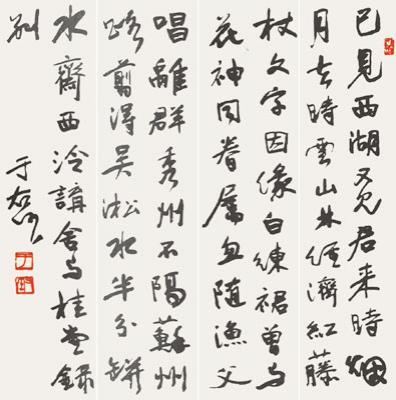 已見西湖又見君来時烟
月去時雲山林經濟紅藤
杖文字因緣白練裙曾与
花神同眷屬且随漁父
唱離群秀州不隔蘇州
路剪得吳淞水半分缾
水齋西泠講舍与桂堂録
别
于右任